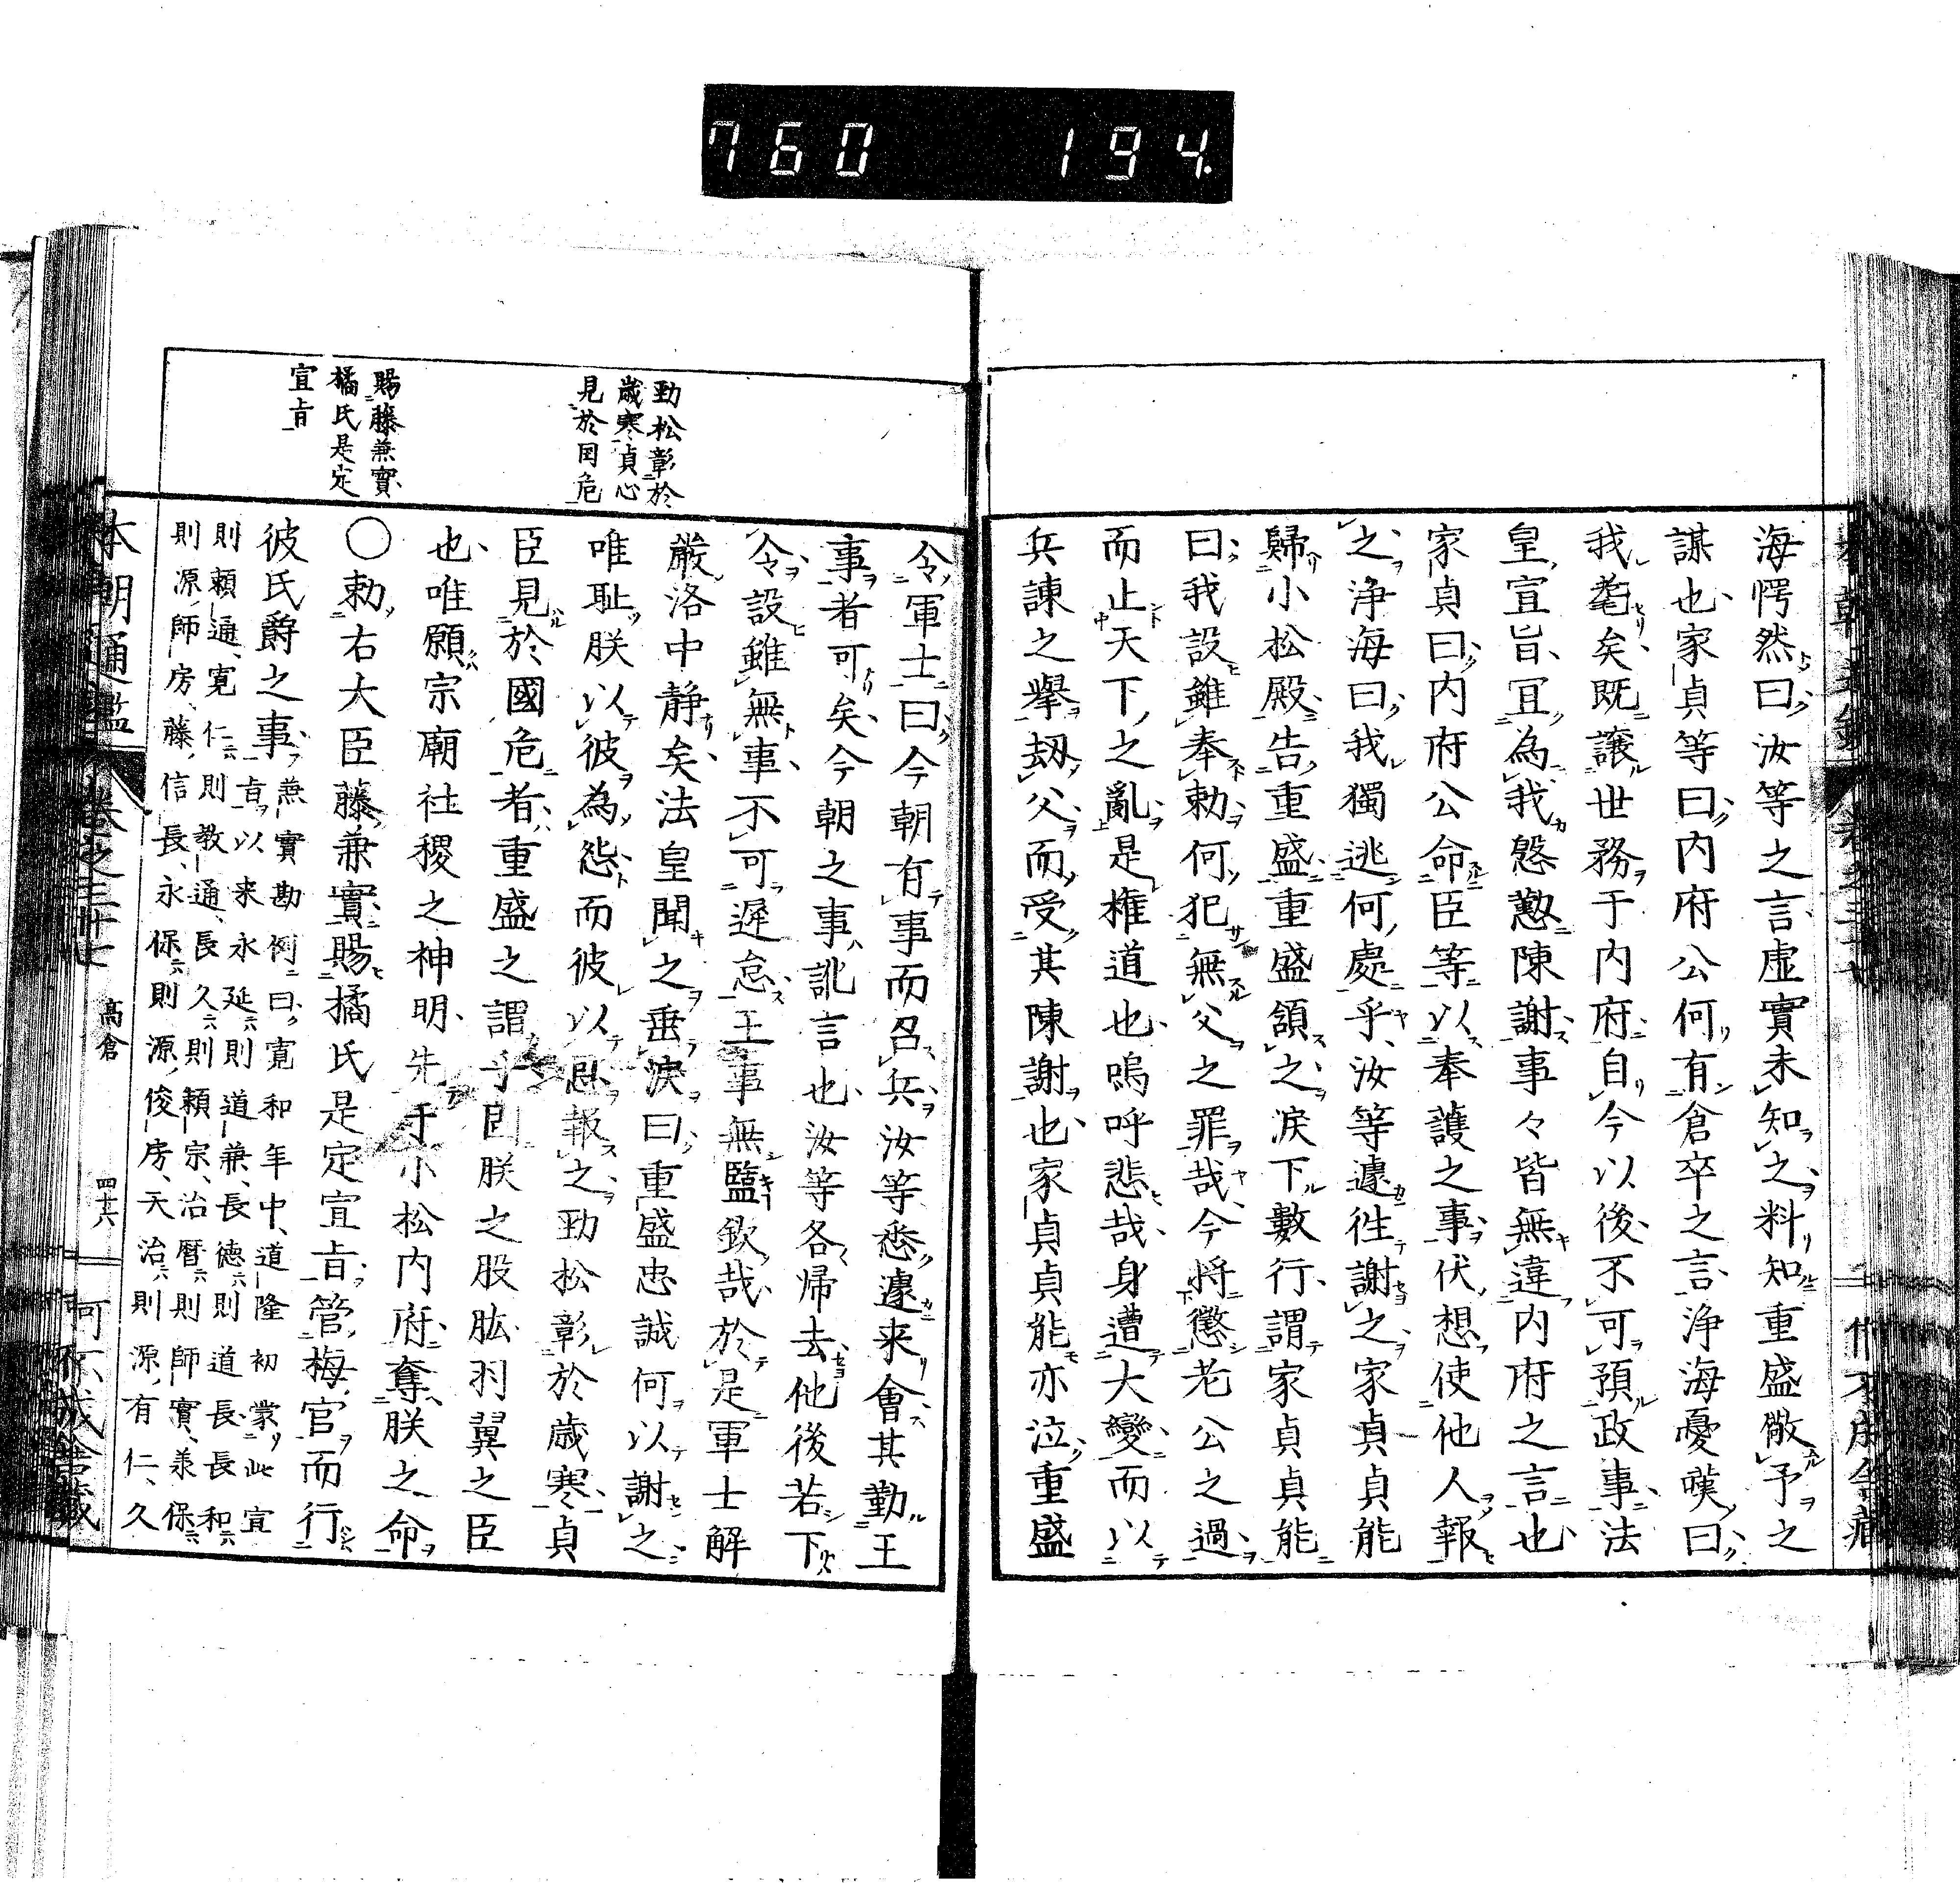 760 194.
海愕然曰汝等之言虛實未知之料知重盛儆予之
謀也家貞等曰内府公何有倉卒之言浄海憂嘆曰
我耄矣既譲世務于内府自今以後不可預政事法
皇宣旨冝為我慇懃陳謝事々皆無違内府之言也
家貞曰内府公命臣等以奉護之事伏想使他人報
之浄海曰我獨逃何處乎汝等遽徃謝之家貞貞能
歸小松殿告重盛重盛頷之涙下數行謂家貞貞能
曰我設雖奉勅何犯無父之罪哉今將懲老公之過
而止天下之亂是権道也嗚呼悲哉身遭大變而以
兵諫之擧刼父而受其陳謝也家貞貞能亦泣重盛
勁松彰於
歳寒貞心
見於国危
賜藤兼實
橘氏是定
宣旨
令軍士曰今朝有事而召兵汝等悉遽来會其勤王
事者可矣今朝之事訛言也汝等各帰去他後若下
令設雖無事不可遲怠王事無盬欽哉於是軍士解
嚴洛中静矣法皇聞之垂涙曰重盛忠誠何以謝之
唯耻朕以彼為怨而彼以恩報之勁松彰於歳寒貞
臣見於國危者重盛之謂乎固朕之股肱羽翼之臣
也唯願宗廟社稷之神明先于小松内府奪朕之命
〇勅右大臣藤兼實賜橘氏是定宣旨管梅官而行
彼氏爵之事兼實勘例曰寛和年中道隆初蒙此宣
旨以来永延則道兼長徳則道長長和
則頼通寛仁則教通長久則頼宗治暦則師實兼保
則源師房藤信長永保則源俊房天治則源有仁久
本朝通鑑 卷之三十七 高倉 四十六